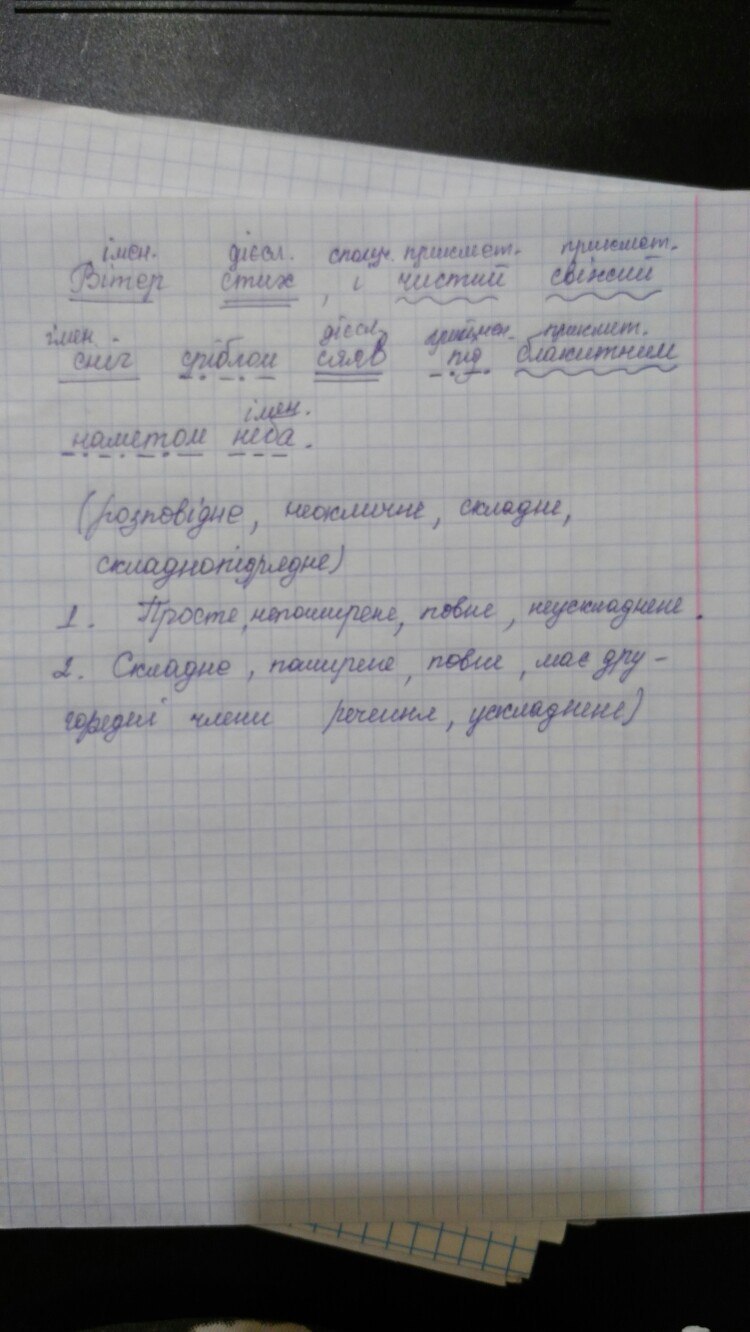 імен. дієсл. сполуч. прикмет. прикмет.
Вітер стих, і чистий свіжий
імен дієсл. приймен. прикмет.
сніг сріблом сяяв під блакитним
імен.
наметом неба.
(розповідне, неокличне, складне,
складнопідрядне)
1. Просте, непоширене, повне, неускладнене.
2. Складне, поширене, повне, має дру-
горедні члени речення, ускладнене)